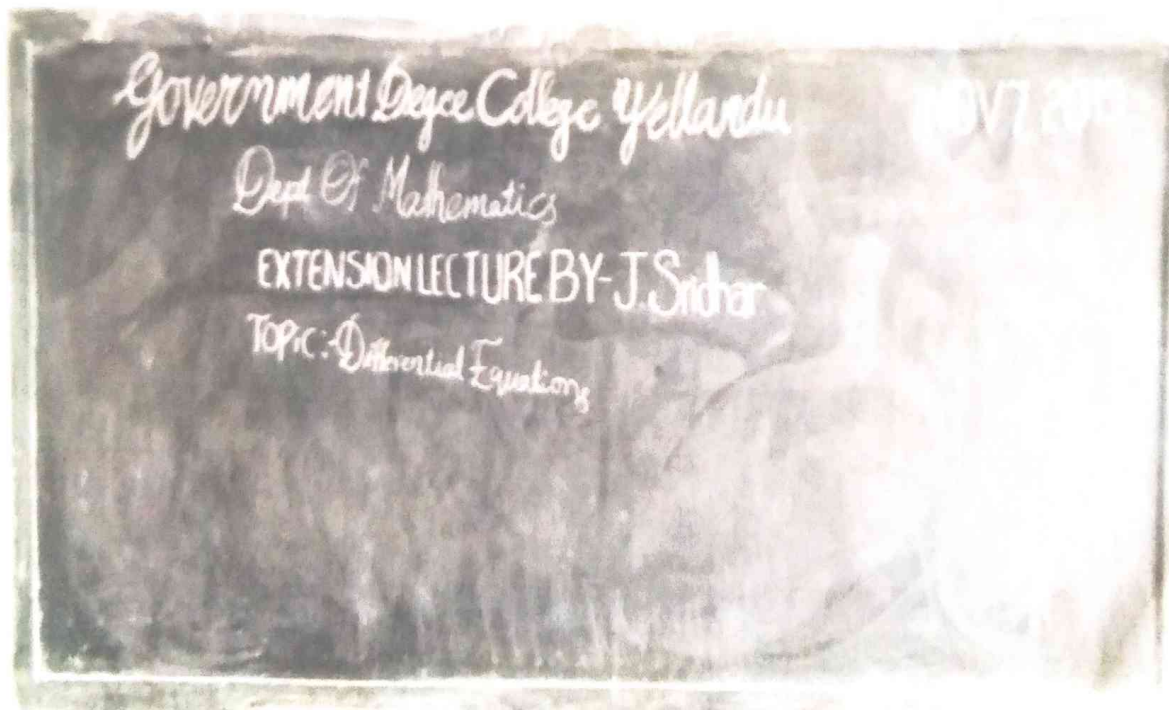 Government Degree College Yellandu
Dept Of Mathematics
EXTENSION LECTURE BY-J.Sridhar
TOPIC:-Differential Equations
NOV 7